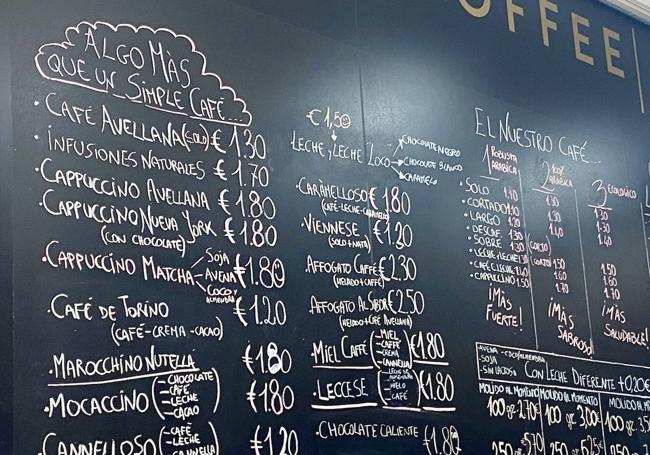 OFFEE
ALGO MÀS
QUE UN SIMPLE CAFÉ...
· CAFÉ AVELLANA (SOLO) €1.30
· INFUSIONES NATURALES €1.70
· CAPPUCCINO AVELLANA €1.80
· CAPPUCCINO NUEVA YORK €1.80
(CON CHOCOLATE)
· CAPPUCCINO MATCHA €1.80
SOJA
AVENA
COCO Y ALMENDRA
· CAFÉ DE TORINO €1.20
(CAFÉ-CREMA-CACAO)
· MAROCCHINO NUTELLA €1.80
· MOCACCINO €1.80
- CHOCOLATE
- CAFÉ
- LECHE
- CACAO
· CANNELLOSO €1.20
- CAFÉ
- LECHE
- CANNELLA
€1,50
LECHE Y LECHE LOCO
CHOCOLATE NEGRO
CHOCOLATE BLANCO
CARAMELO
· CARÀMELLOSO €1.80
(CAFÉ-LECHE-CARAMELLO)
· VIENNESE €1.30
(SOLO+NATA)
· AFFOGATO CAFFÉ €2.30
(HELADO+CAFFÉ)
· AFFOGATO AL SABOR €2.50
(HELADO+CAFÉ AVELLANA)
· MIEL CAFFÉ €1.80
- MIEL
- CAFFÉ
- CREMA
- CANNELLA
· LECCESE €1.80
- LECHE DE ALMENDRA
- HIELO
- CAFÉ
· CHOCOLATE CALIENTE €1.80
EL NUESTRO CAFÉ...
1 ROBUSTA ARABICA
2 100% ARABICA
3 ECOLÓGICO
· SOLO 1.10 1.30 1.30
· CORTADO 1.20 1.30 1.30
· LARGO 1.20 1.40 1.40
· DESCAF. 1.30
· SOBRE 1.30 (CORTO)
· LECHE Y LECHE 1.30 (CORTO) 1.50 1.50
· CAFÉ C/LECHE 1.40 1.60 1.60
· CAPPUCCINO 1.50 1.70 1.70
¡MÁS FUERTE!
¡MÁS SABROSO!
¡MÁS SALUDABLE!
- AVENA - COCO/ALMENDRA
- SOJA
- SIN LACTOSA CON LECHE DIFERENTE +0,20€
MOLIDO AL MOMENTO MOLIDO AL MOMENTO MOLIDO AL M
100 gr 2.70€ 100 gr 3,00€ 100 gr 3,5
250 gr 5.70 250 gr 6.25€ 250 gr